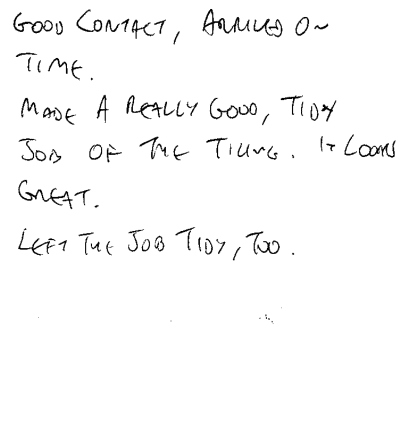 GOOD CONTACT, ARRIVED ON
TIME.
MADE A REALLY GOOD, TIDY
JOB OF THE TILING. IT LOOKS
GREAT.
LEFT THE JOB TIDY, TOO.